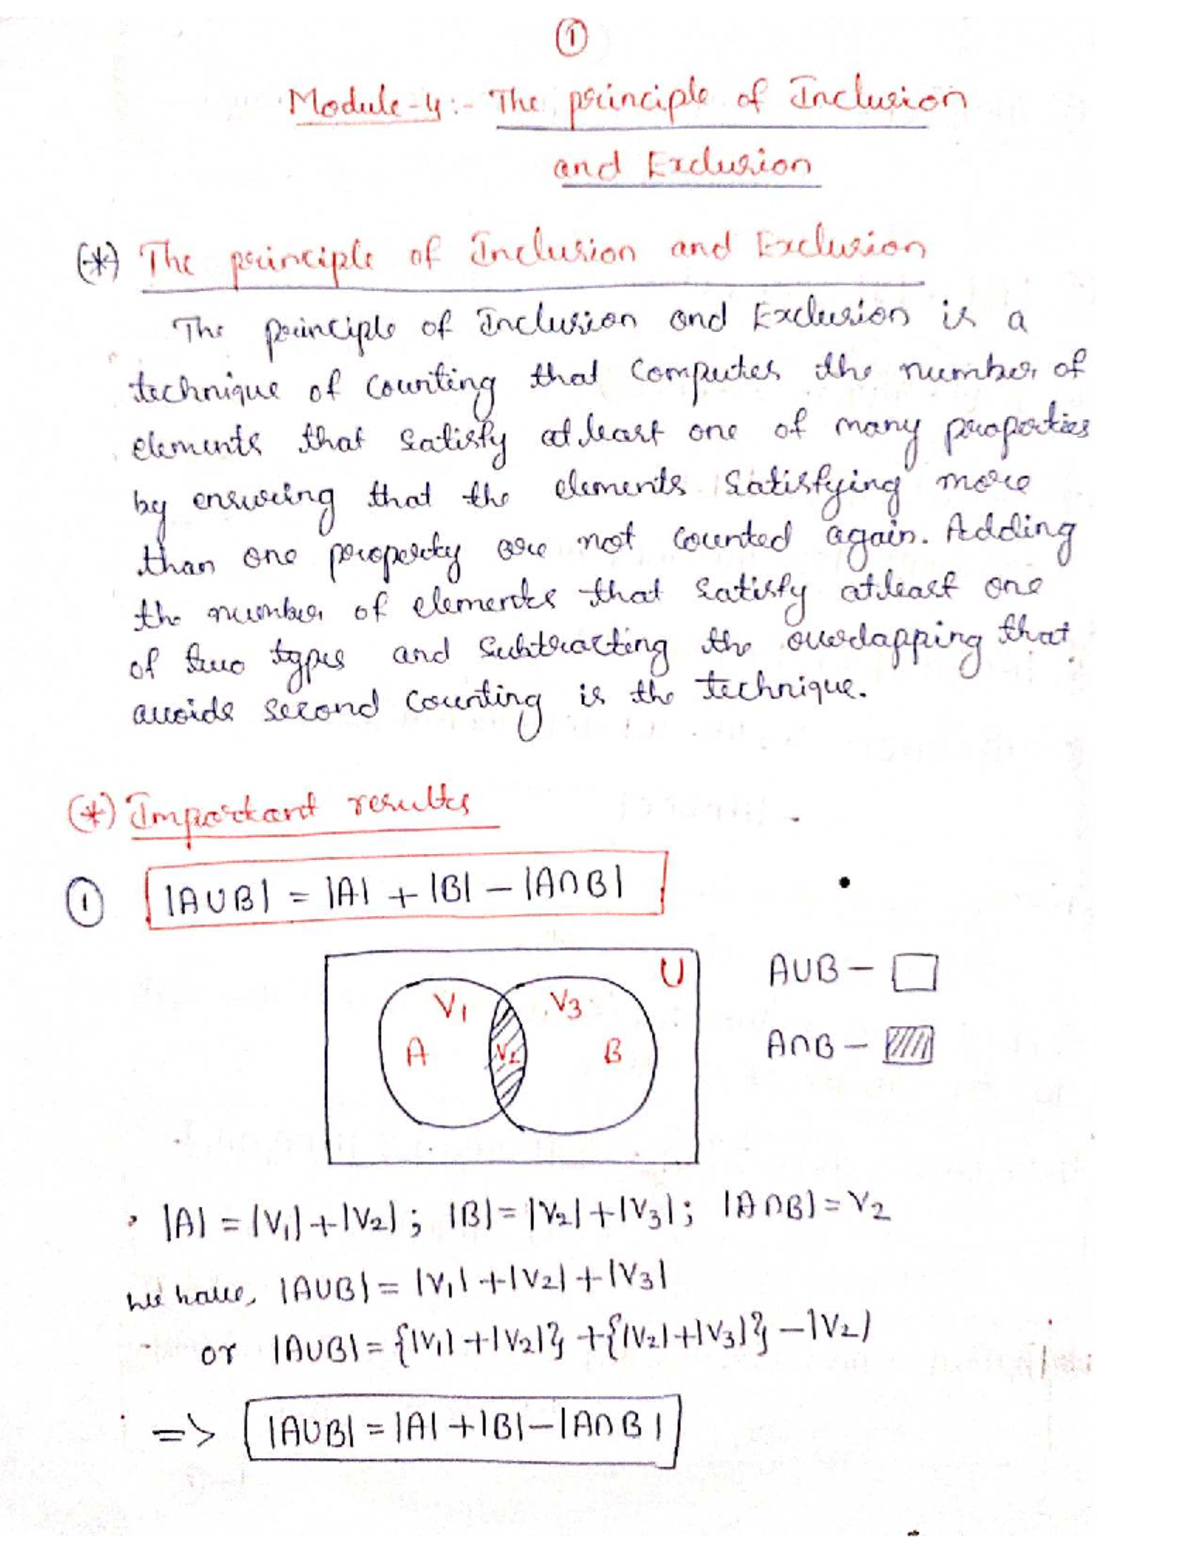 1
Module-4:- The principle of Inclusion
and Exclusion
(*) The principle of Inclusion and Exclusion
The principle of Inclusion and Exclusion is a
technique of counting that computes the number of
elements that satisfy atleast one of many properties
by ensuring that the elements satisfying more
than one property are not counted again. Adding
the number of elements that satisfy atleast one
of two types and subtracting the overlapping that
avoids second counting is the technique.
(*) Important results
1 |A∪B| = |A| + |B| - |A∩B|
U
A∪B -
V1 V3
A V2 B
A∩B -
|A| = |V1| + |V2| ; |B| = |V2| + |V3| ; |A∩B| = V2
we have, |A∪B| = |V1| + |V2| + |V3|
or |A∪B| = {|V1| + |V2|} + {|V2| + |V3|} - |V2|
=> |A∪B| = |A| + |B| - |A∩B|